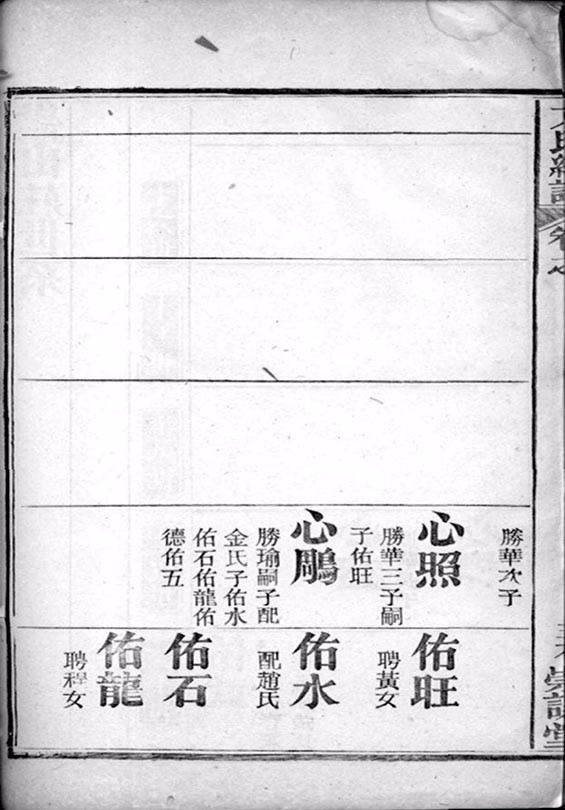 氏續譜
卷
崇譜堂
勝華次子
心照
勝華三子嗣
子佑旺
心鵰
勝瑜嗣子配
金氏子佑水
佑石佑龍佑
德佑五
佑旺
聘黃女
佑水
配趙氏
佑石
佑龍
聘程女